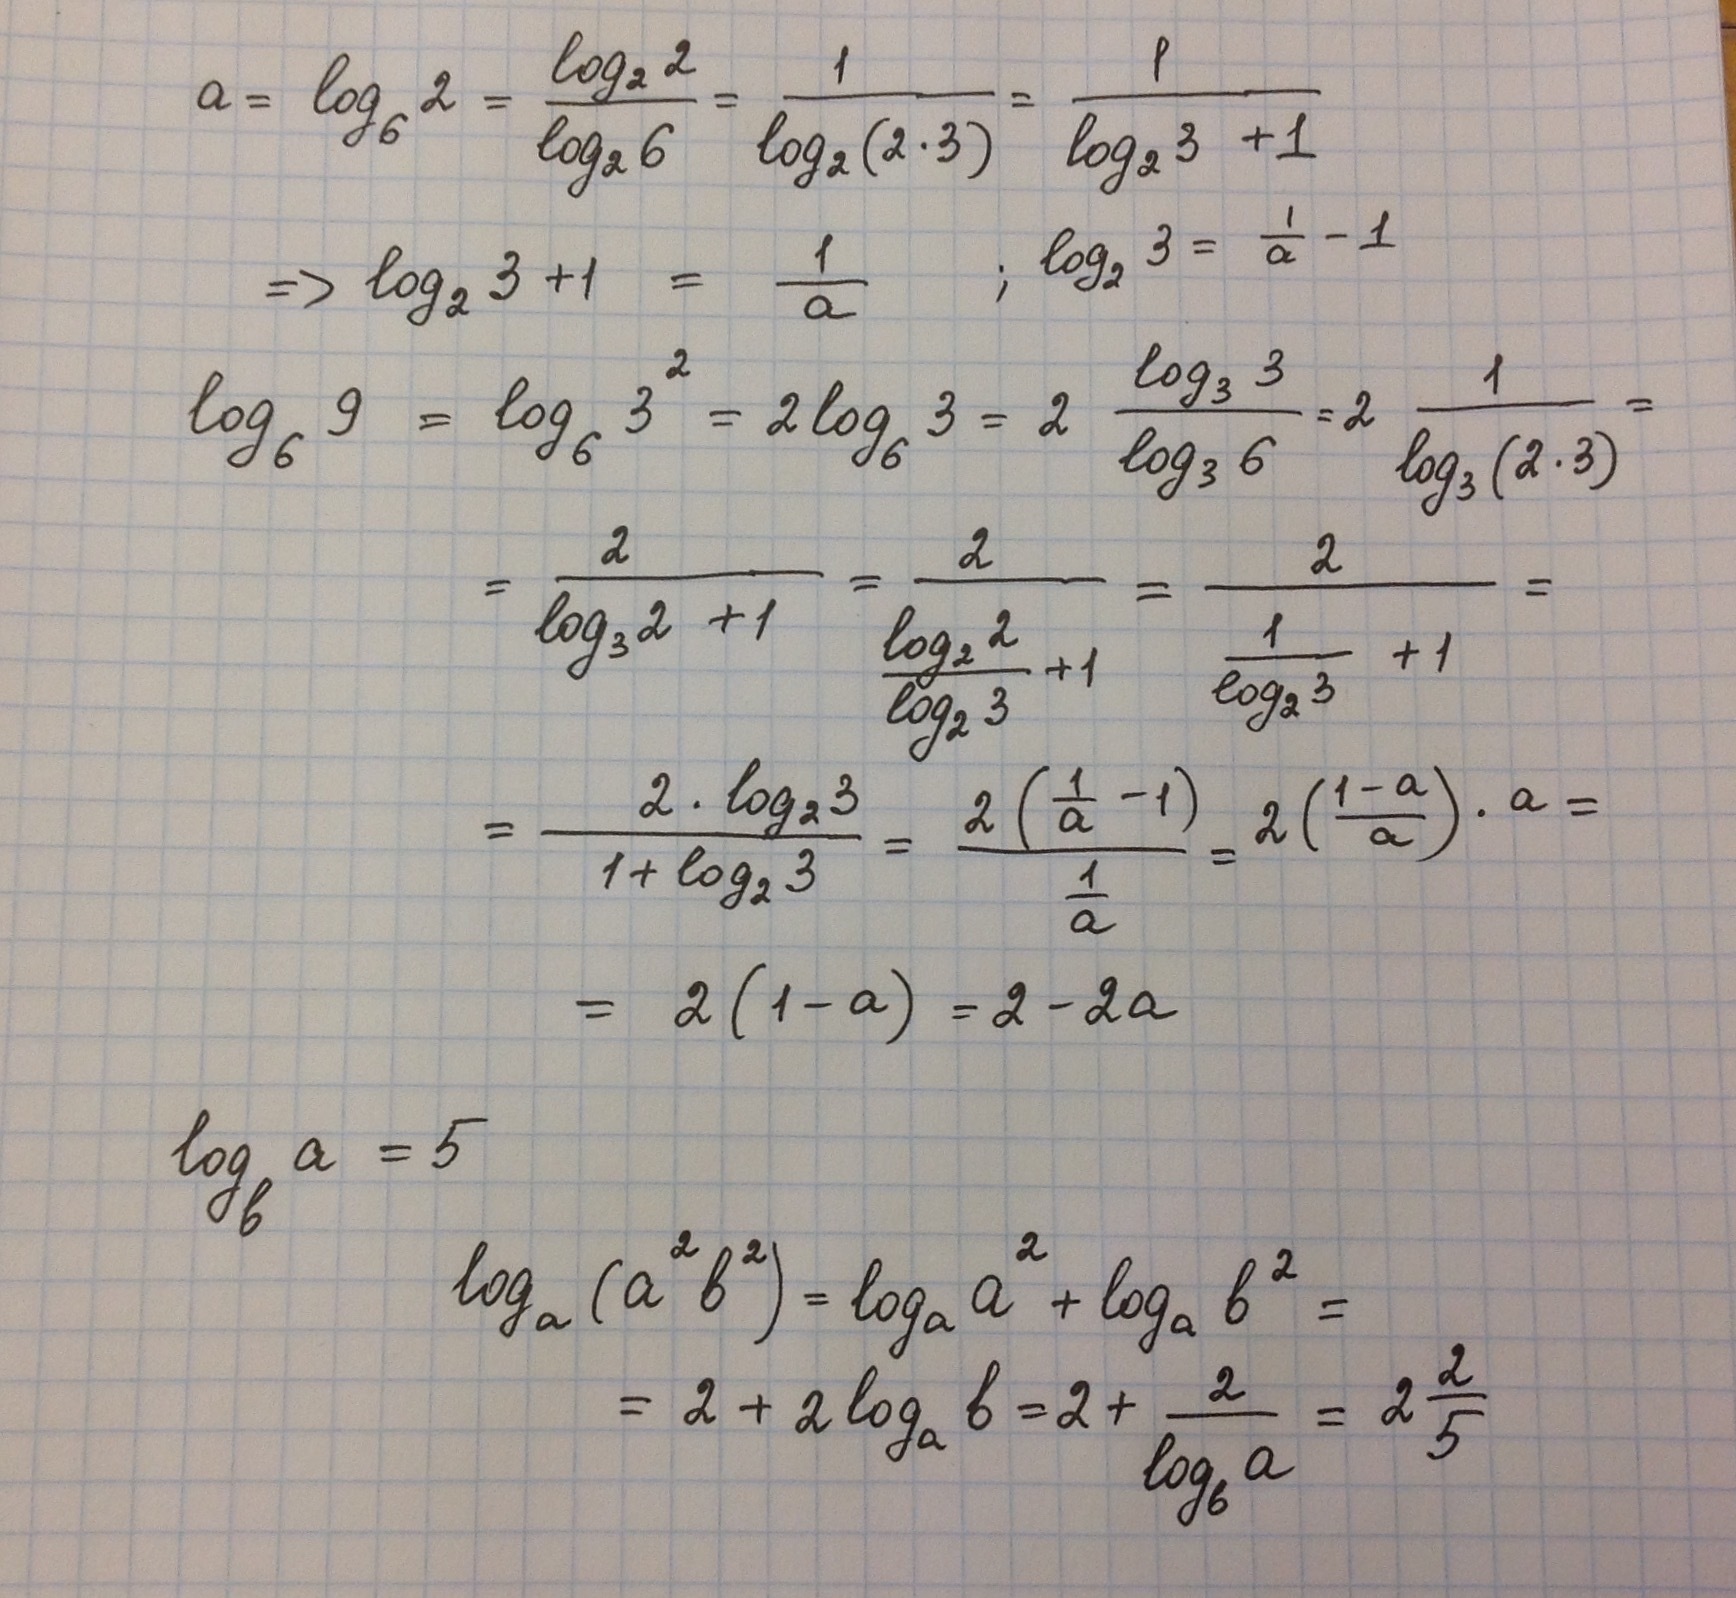 a = log₆ 2 = (log₂ 2)/(log₂ 6) = 1/(log₂(2·3)) = 1/(log₂ 3 + 1)
=> log₂ 3 + 1 = 1/a ; log₂ 3 = 1/a - 1
log₆ 9 = log₆ 3² = 2 log₆ 3 = 2 (log₃ 3)/(log₃ 6) = 2 1/(log₃(2·3)) =
= 2/(log₃ 2 + 1) = 2/((log₂ 2)/(log₂ 3) + 1) = 2/(1/(log₂ 3) + 1) =
= (2 · log₂ 3)/(1 + log₂ 3) = (2(1/a - 1))/(1/a) = 2((1-a)/a) · a =
= 2(1 - a) = 2 - 2a
log_b a = 5
logₐ(a²b²) = logₐ a² + logₐ b² =
= 2 + 2 logₐ b = 2 + 2/(log_b a) = 2 2/5